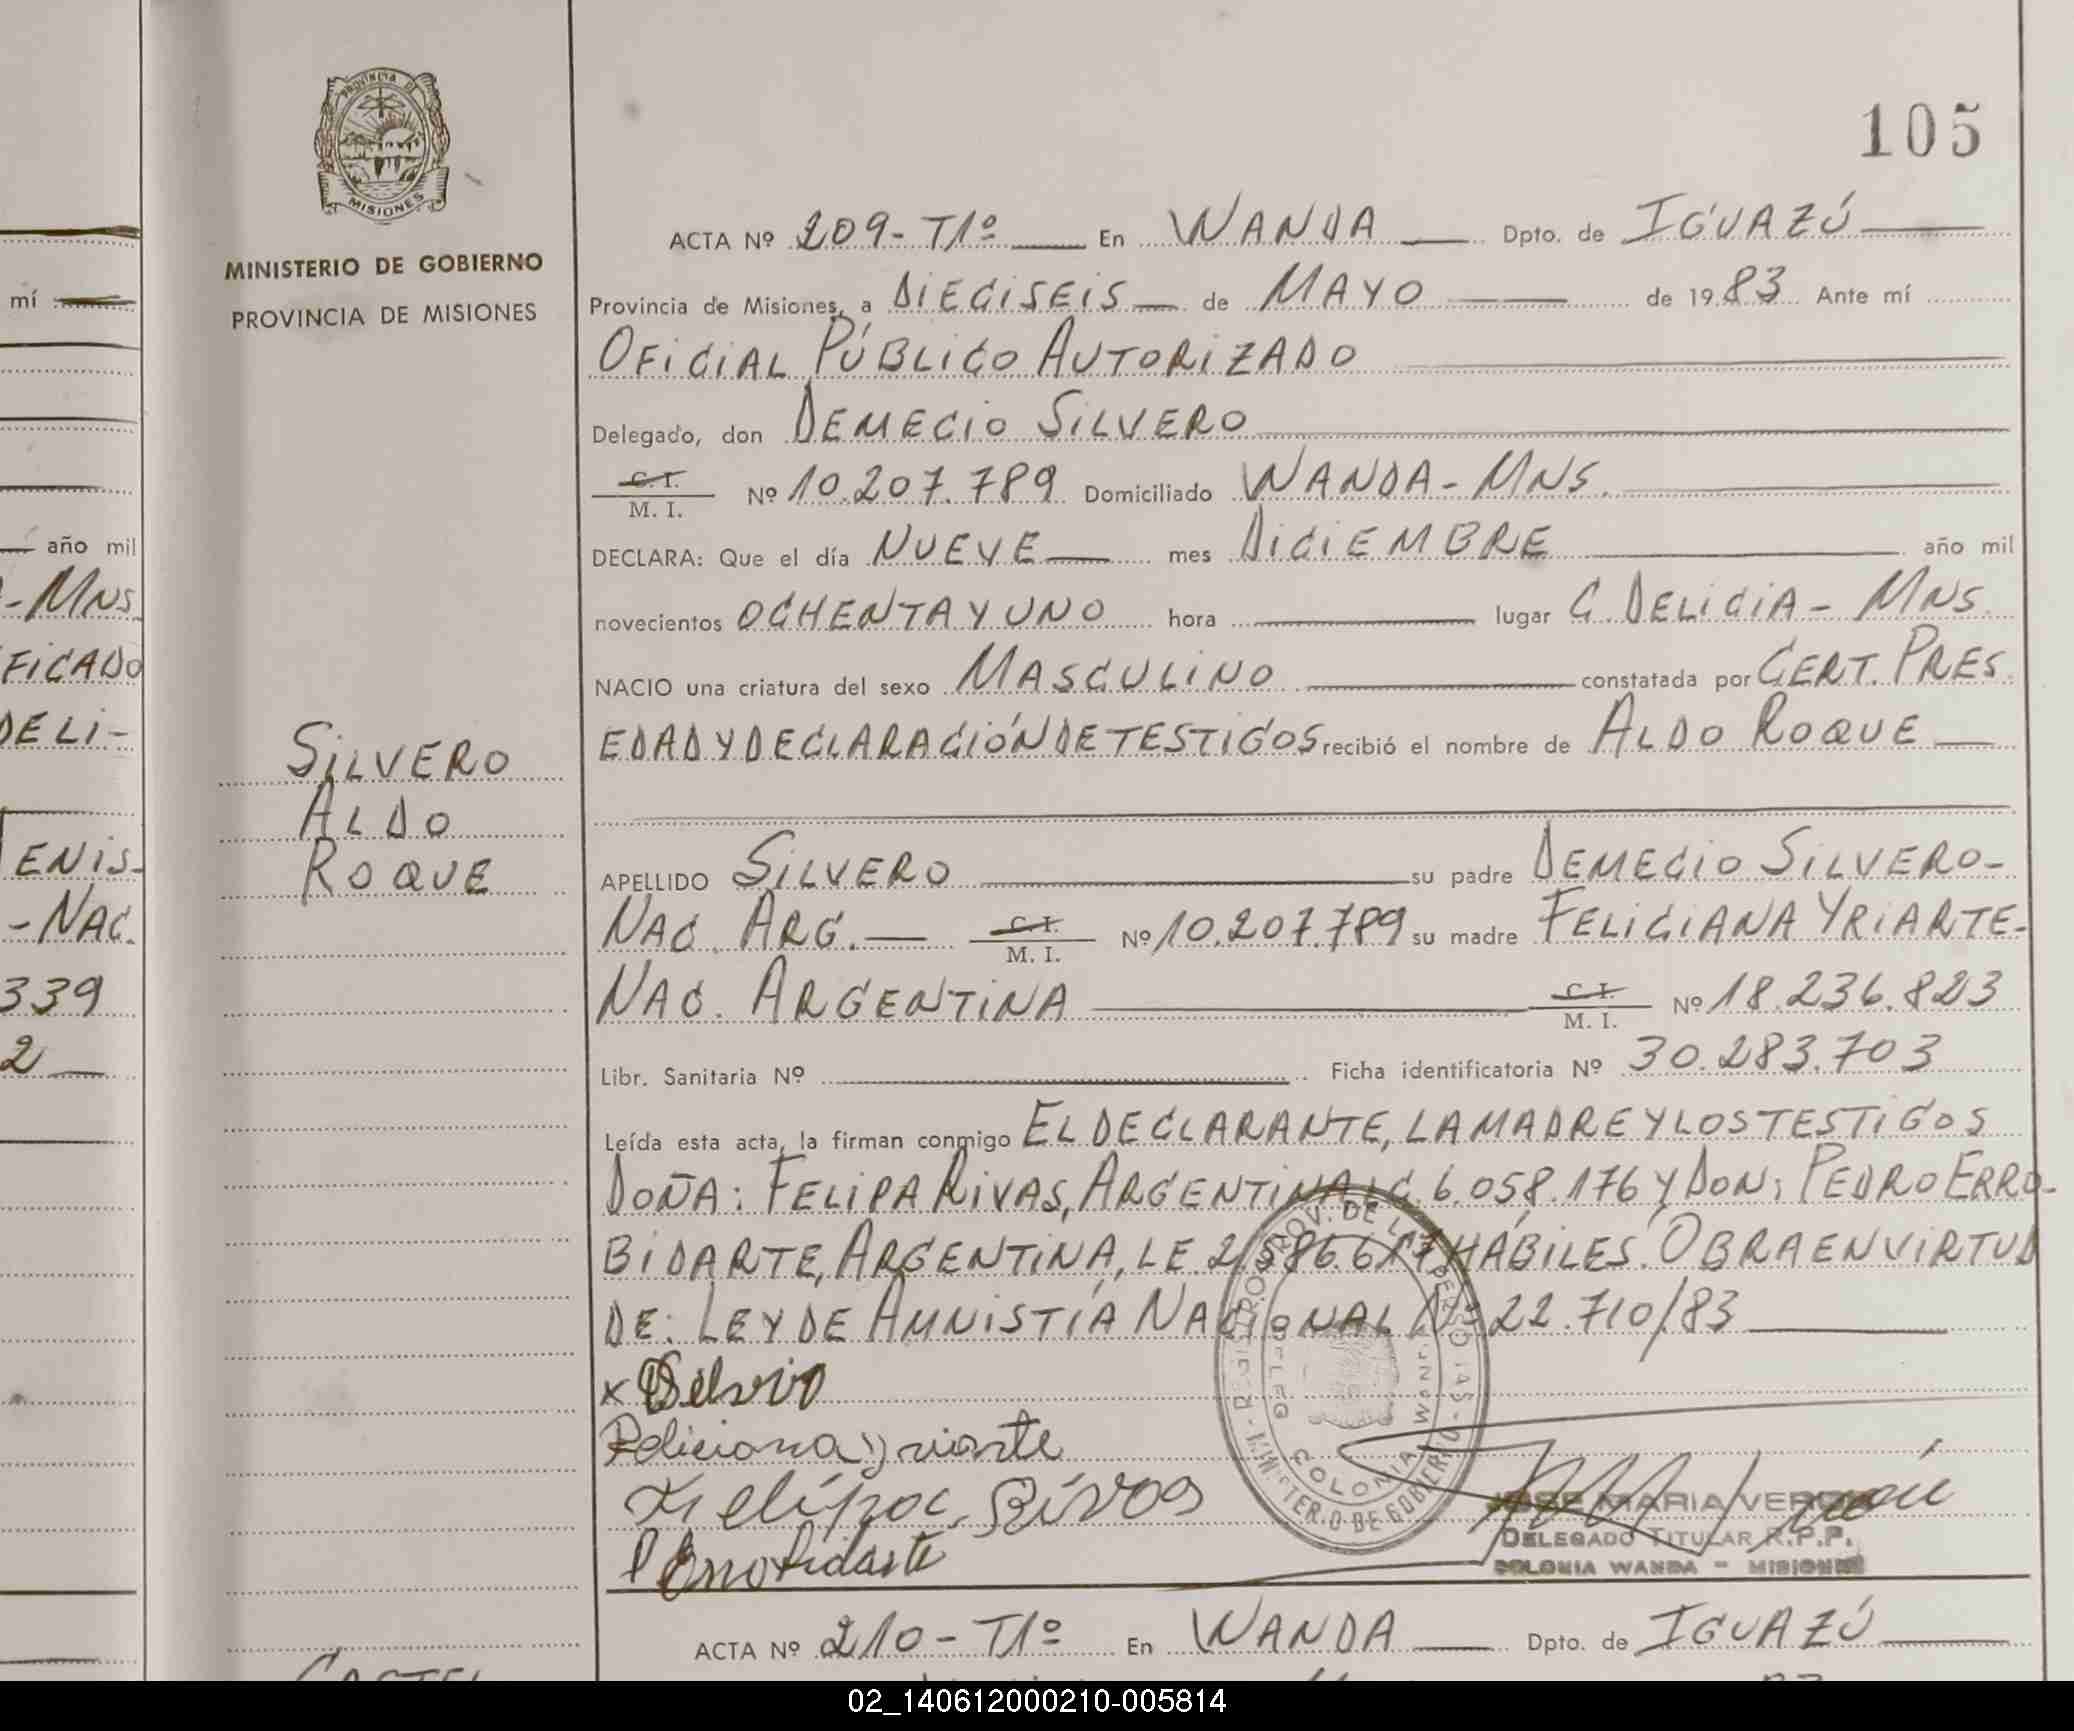 105
PROVINCIA DE
MISIONES
MINISTERIO DE GOBIERNO
PROVINCIA DE MISIONES
mí
año mil
-MNS
FICADO
DELI-
ENIS-
-NAC.
339
2
SILVERO
ALDO
ROQUE
ACTA Nº 209-T1º En WANDA Dpto. de IGUAZÚ
Provincia de Misiones, a DIECISEIS de MAYO de 1983 Ante mí
OFICIAL PÚBLICO AUTORIZADO
Delegado, don DEMECIO SILVERO
C. I.
M. I. Nº 10.207.789 Domiciliado WANDA-MNS.
DECLARA: Que el día NUEVE mes DICIEMBRE año mil
novecientos OCHENTA Y UNO hora lugar C. DELICIA-MNS.
NACIO una criatura del sexo MASCULINO constatada por CERT. PRES.
EDAD Y DECLARACIÓN DE TESTIGOS recibió el nombre de ALDO ROQUE
APELLIDO SILVERO su padre DEMECIO SILVERO-
NAC. ARG. C. I. M. I. Nº 10.207.789 su madre FELICIANA YRIARTE-
NAC. ARGENTINA C. I. M. I. Nº 18.236.823
Libr. Sanitaria Nº Ficha identificatoria Nº 30.283.703
Leída esta acta, la firman conmigo EL DECLARANTE, LA MADRE Y LOS TESTIGOS
DOÑA: FELIPA RIVAS, ARGENTINA, LC. 6.058.176 Y DON: PEDRO ERRO-
BIDARTE, ARGENTINA, LE. HÁBILES. OBRA EN VIRTUD
DE: LEY DE AMNISTÍA NACIONAL Nº 22.710/83
x
Feliciana yriarte
Felipa Rivas
P Errobidarte
COLONIA
MINISTERIO DE GOBIERNO
JOSE MARIA
DELEGADO TITULAR R.P.P.
COLONIA WANDA - MISIONES
ACTA Nº 210-T1º En WANDA Dpto. de IGUAZÚ
02_140612000210-005814